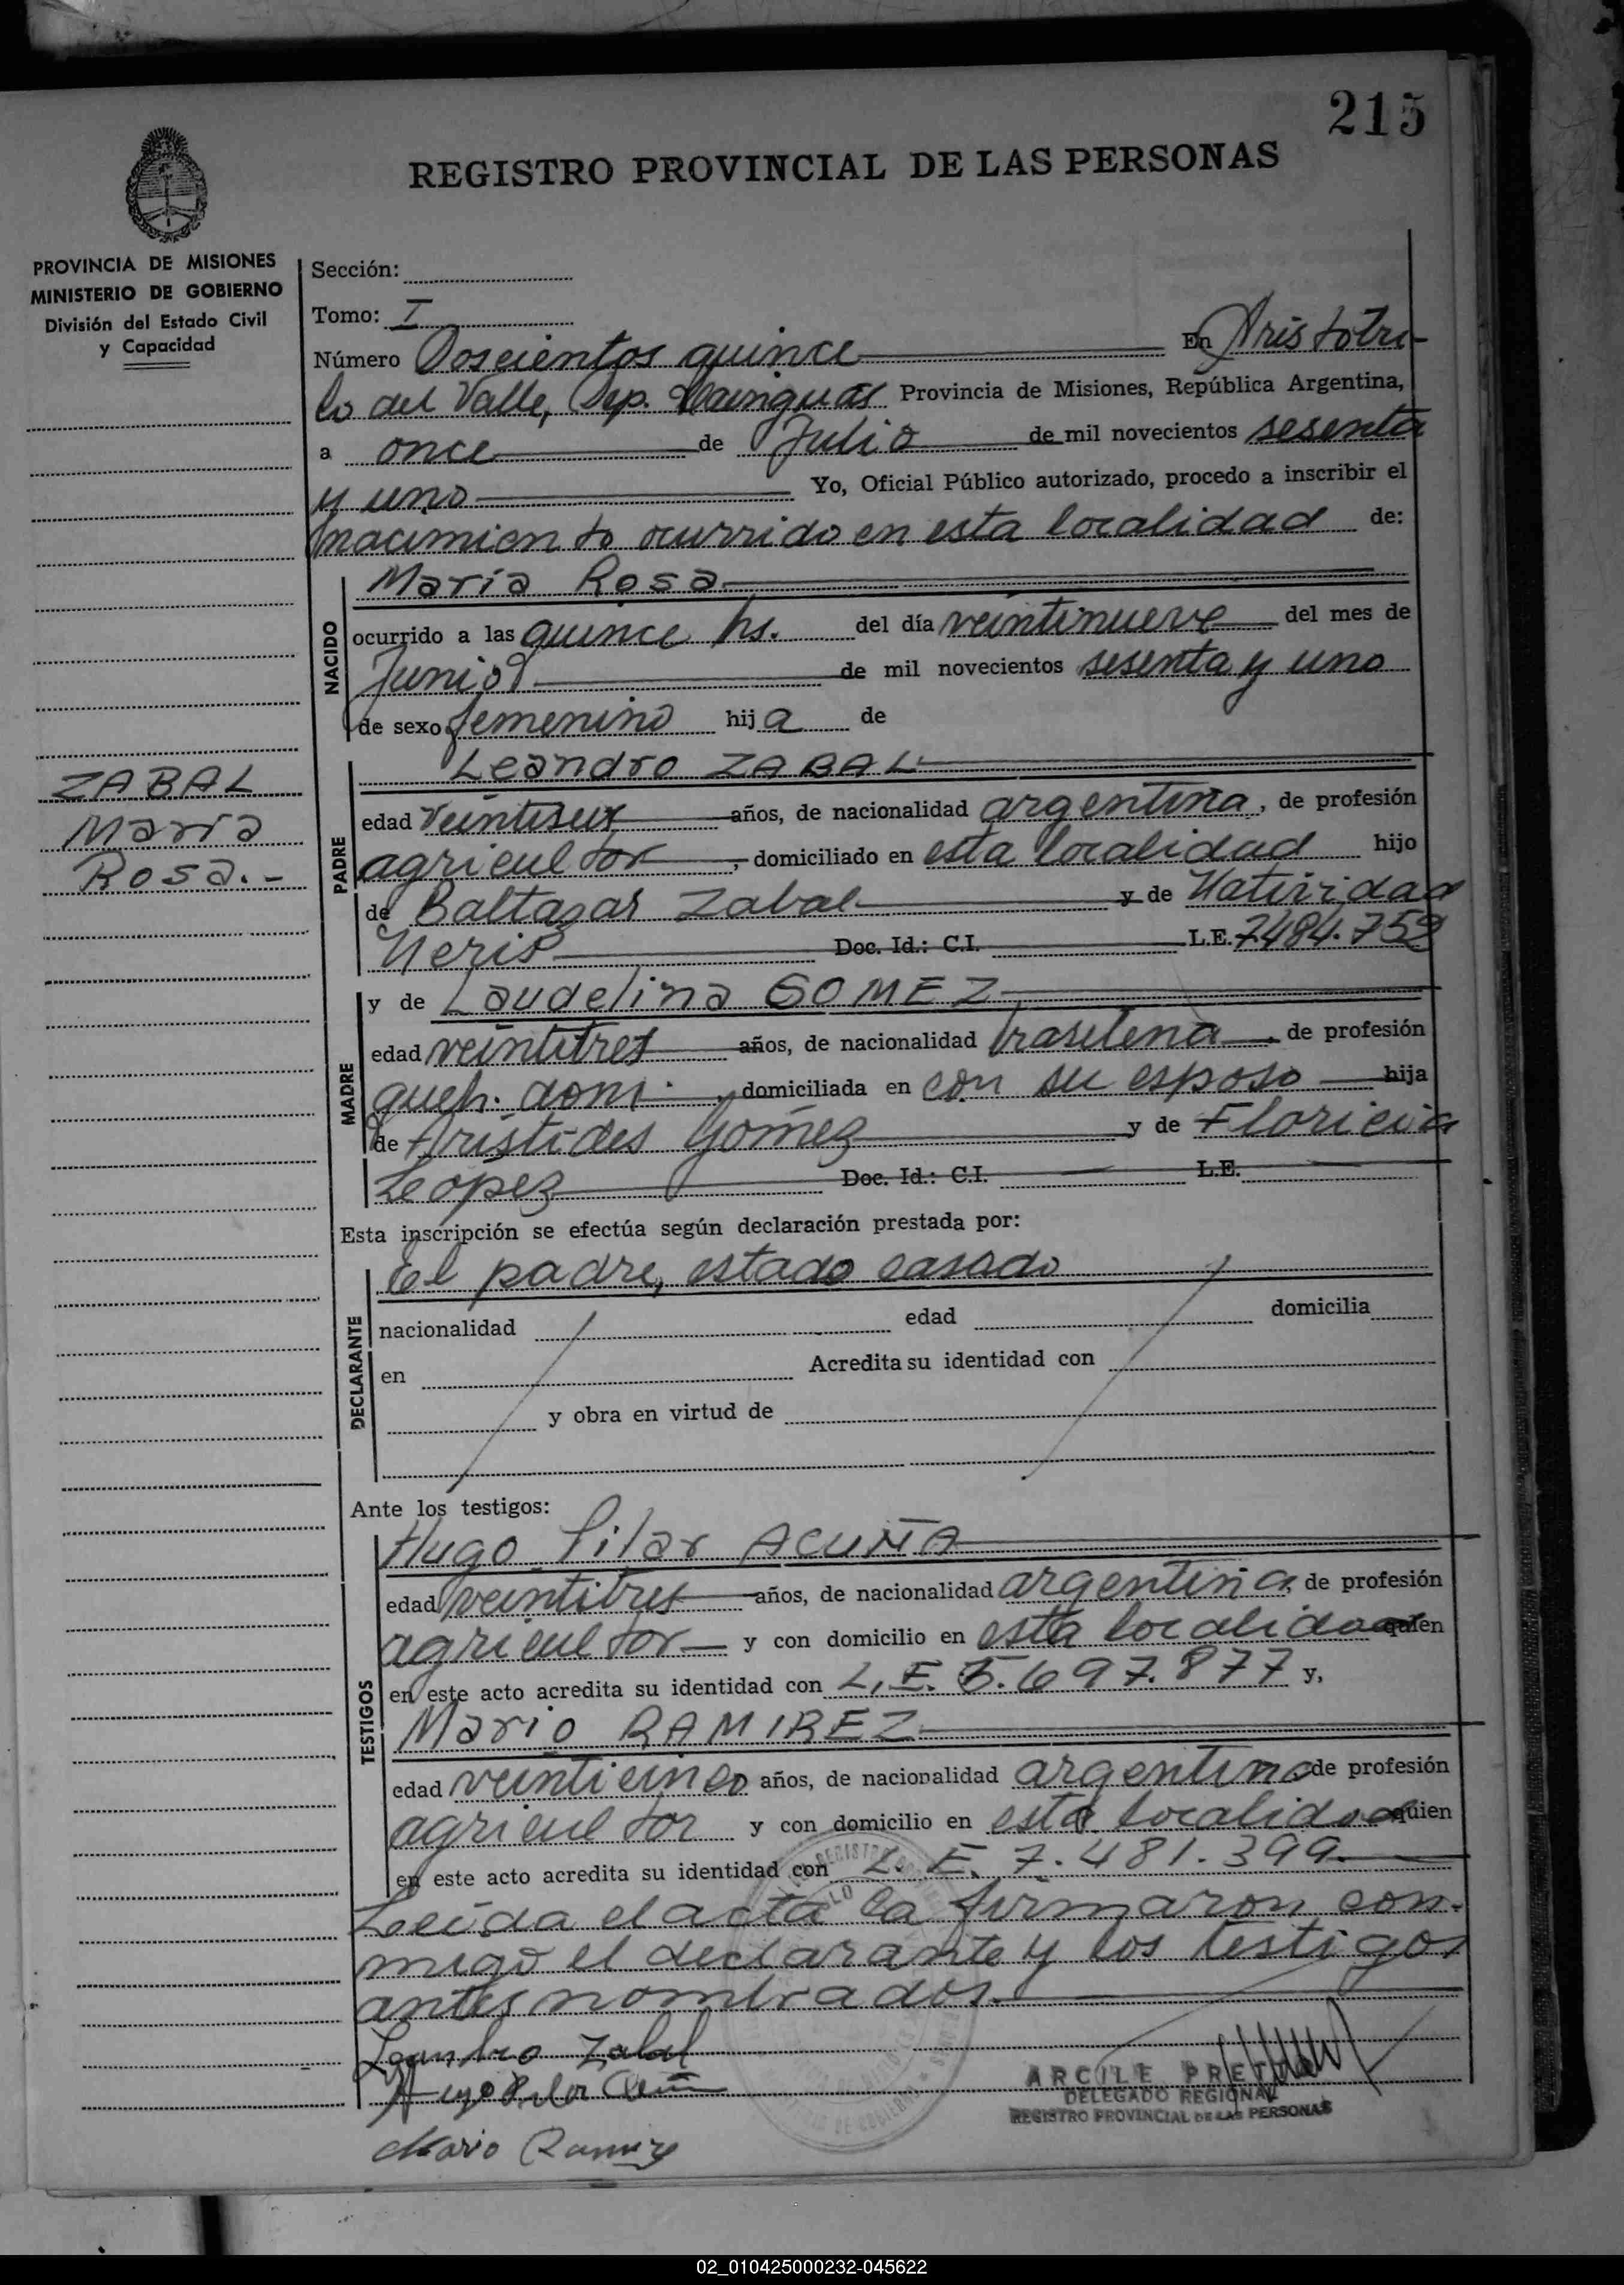 215
REGISTRO PROVINCIAL DE LAS PERSONAS
PROVINCIA DE MISIONES
MINISTERIO DE GOBIERNO
División del Estado Civil
y Capacidad
Sección:
Tomo: I
Número Doscientos quince En Aristótu-
lo del Valle, Dep. Cainguás Provincia de Misiones, República Argentina,
a once de Julio de mil novecientos sesenta
y uno Yo, Oficial Público autorizado, procedo a inscribir el
nacimiento ocurrido en esta localidad de:
NACIDO
María Rosa
ocurrido a las quince hs. del día veintinueve del mes de
Junio de mil novecientos sesenta y uno
de sexo femenino hija de
ZABAL
María
Rosa.-
PADRE
Leandro ZABAL
edad años, de nacionalidad argentina, de profesión
agricultor, domiciliado en esta localidad hijo
de Baltazar Zabal y de Natividad
Neris Doc. Id.: C.I. L.E. 7484.759
MADRE
y de Laudelina GOMEZ
edad veintitres años, de nacionalidad brasilena, de profesión
queh. dom. domiciliada en con su esposo hija
de Arístides Gomez y de Floricia
Lopez Doc. Id.: C.I. L.E.
Esta inscripción se efectúa según declaración prestada por:
DECLARANTE
El padre, estado casado
nacionalidad edad domicilia
en Acredita su identidad con
y obra en virtud de
Ante los testigos:
TESTIGOS
Hugo Pilar ACUÑA
edad veintitres años, de nacionalidad argentina, de profesión
agricultor y con domicilio en esta localidad quien
en este acto acredita su identidad con L.E. 5.697.877 y,
Mario RAMIREZ
edad veinticinco años, de nacionalidad argentina de profesión
agricultor y con domicilio en esta localidad quien
en este acto acredita su identidad con L.E. 7.481.399.
Leída el acta la firmaron con-
migo el declarante y los testigos
antes nombrados.
Leandro Zabal
Hugo Pilar Acuña
ARCILE PRETTO
DELEGADO REGIONAL
REGISTRO PROVINCIAL DE LAS PERSONAS
Mario Ramirez
02_010425000232-045622